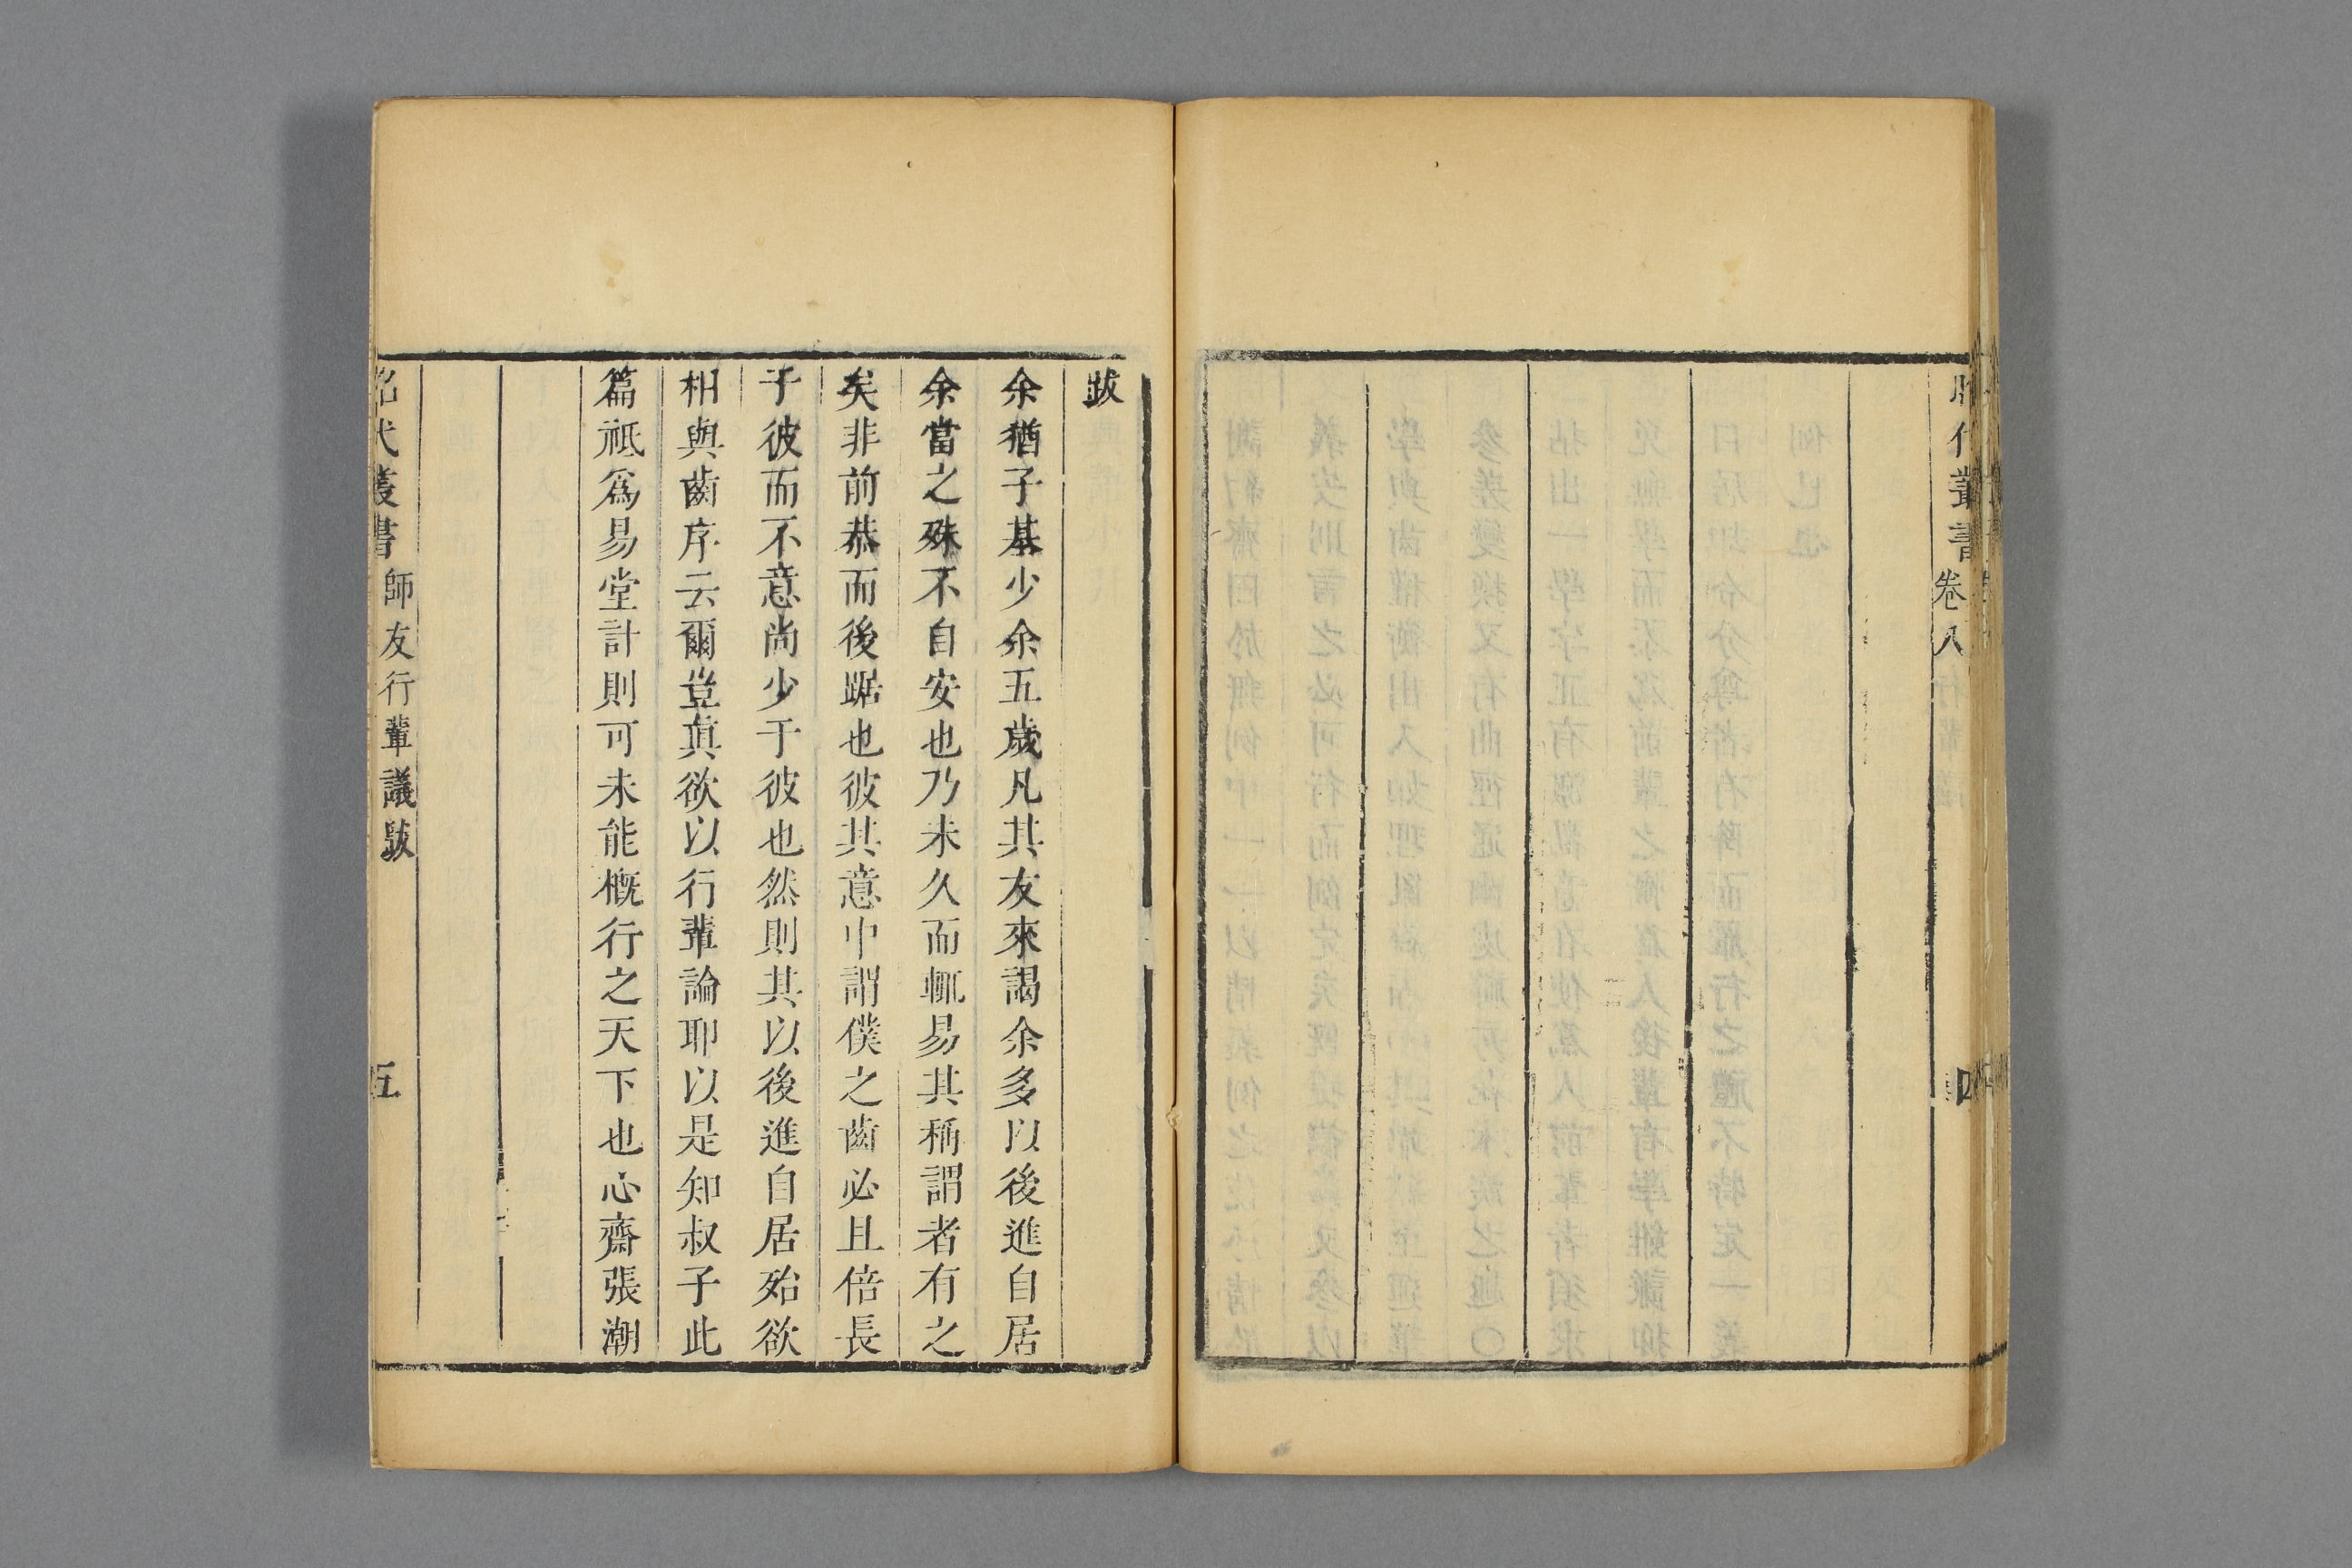 昭代叢書 卷八
四
跋
余猶子基少余五歲凡其友來謁余多以後進自居
余當之殊不自安也乃未久而輒易其稱謂者有之
矣非前恭而後踞也彼其意中謂僕之齒必且倍長
于彼而不意尚少于彼也然則其以後進自居殆欲
相與齒序云爾豈眞欲以行輩論耶以是知叔子此
篇祗爲易堂計則可未能概行之天下也心齋張潮
昭代叢書 師友行輩議跋
五